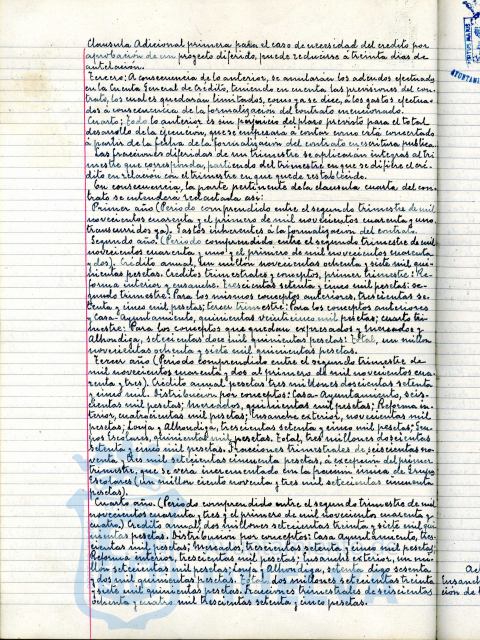 Clausula Adicional primera para el caso de necesidad del credito por
aprobación de un proyecto diferido, puede reducirse á treinta dias de
antelación.
Tercero; A consecuencia de lo anterior, se anularán los adeudos efectuados
en la Cuenta General de Crédito, teniendo en cuenta las previsiones del con-
trato, los cuales quedarán limitados, como ya se dice, á los gastos efectua-
dos á consecuencia de la formalización del contrato mencionado.
Cuarto; Todo lo anterior es sin perjuicio del plazo previsto para el total
desarrollo de la ejecución, que se empezará á contar como está concertado
á partir de la fecha de la formalización del contrato en escritura publica.
Las fracciones diferidas de un trimestre se aplicarán integras al tri-
mestre que corresponda, partiendo del trimestre en que se difiere el cré-
dito en relación con el trimestre en que quede restablecido.
En consecuencia, la parte pertinente de la clausula cuarta del con-
trato se entenderá redactada asi:
Primer año (Periodo comprendido entre el segundo trimestre de mil
novecientos cuarenta y el primero de mil novecientos cuarenta y uno,
transcurridos ya). Gastos inherentes á la formalización del contrato.
Segundo año, (Periodo comprendido, entre el segundo trimestre de mil
novecientos cuarenta y uno y el primero de mil novecientos cuarenta
y dos). Crédito anual, Un millon novecientos ochenta y siete mil qui-
nientas pesetas. Creditos trimestrales y conceptos, primer trimestre: Re-
forma interior y ensanche. Trescientas setenta y cinco mil pesetas; se-
gundo trimestre: Para los mismos conceptos anteriores, trescientas se-
tenta y cinco mil pesetas; tercer trimestre: Para los conceptos anteriores
y Casa-Ayuntamiento, quinientas veinticinco mil pesetas; cuarto tri-
mestre: Para los conceptos que quedan expresados y Mercados y
Alhondiga, setecientas doce mil quinientas pesetas: Total, un millon
novecientas ochenta y siete mil quinientas pesetas.
Tercer año (Periodo comprendido entre el segundo trimestre de
mil novecientos cuarenta y dos al primero de mil novecientos cua-
renta y tres). Crédito anual pesetas tres millones doscientas setenta
y cinco mil. Distribucion por conceptos: Casa-Ayuntamiento, seis-
cientas mil pesetas; Mercados, quinientas mil pesetas; Reforma in-
terior, cuatrocientas mil pesetas; Ensanche exterior, novecientas mil
pesetas; Lonja y Alhondiga, trescientas setenta y cinco mil pesetas; Gru-
pos Escolares, quinientas mil pesetas. Total, tres millones doscientas
setenta y cinco mil pesetas. Fracciones trimestrales de seiscientas no-
venta y tres mil setecientas cincuenta pesetas, á excepción del primer
trimestre, que se verá incrementado en la porción única de Grupos
Escolares (un millon ciento noventa y tres mil setecientas cincuenta
pesetas).
Cuarto año. (Periodo comprendido entre el segundo trimestre de mil
novecientos cuarenta y tres y el primero de mil novecientos cuarenta y
cuatro) Credito anual, dos millones setecientas treinta y siete mil qui-
nientas pesetas. Distribucion por conceptos: Casa Ayuntamiento, tres-
cientas mil pesetas; Mercados, trescientas setenta y cinco mil pesetas;
Reforma interior, trescientas mil pesetas; Ensanche exterior, un mi-
llon setecientas mil pesetas; Lonja y Alhondiga, setenta digo sesenta
y dos mil quinientas pesetas. Total dos millones setecientas treinta
y siete mil quinientas pesetas. Fracciones trimestrales de seiscientas
ochenta y cuatro mil trescientas setenta y cinco pesetas.